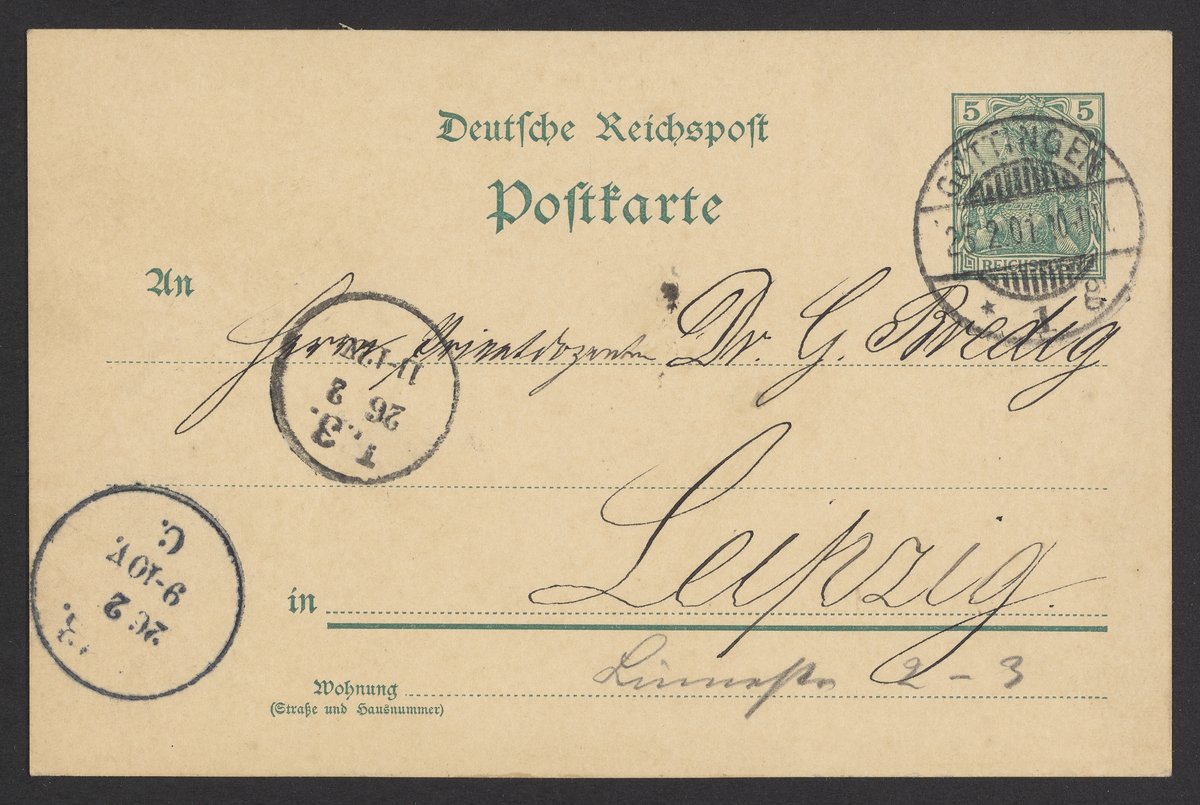 Deutsche Reichspost
Postkarte
5 5
REICHSPOST
GÖTTINGEN
25.2.01.10-11
* 1
An
Herrn Privatdozenten Dr. G. Bredig
11-12
26 2
B.
Leipzig.
in
Wohnung
(Straße und Hausnummer)
Linnéstr 2-3
C.
9-10V.
26 2